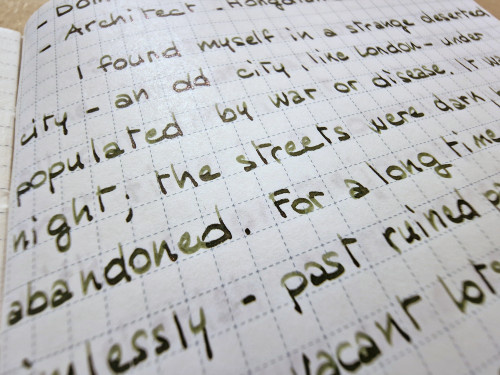 - Architect - 
I found myself in a strange deserted
city - an old city, like London - under
populated by war or disease. It
night; the streets were dark
abandoned. For a long time
- past ruined
vacant lots